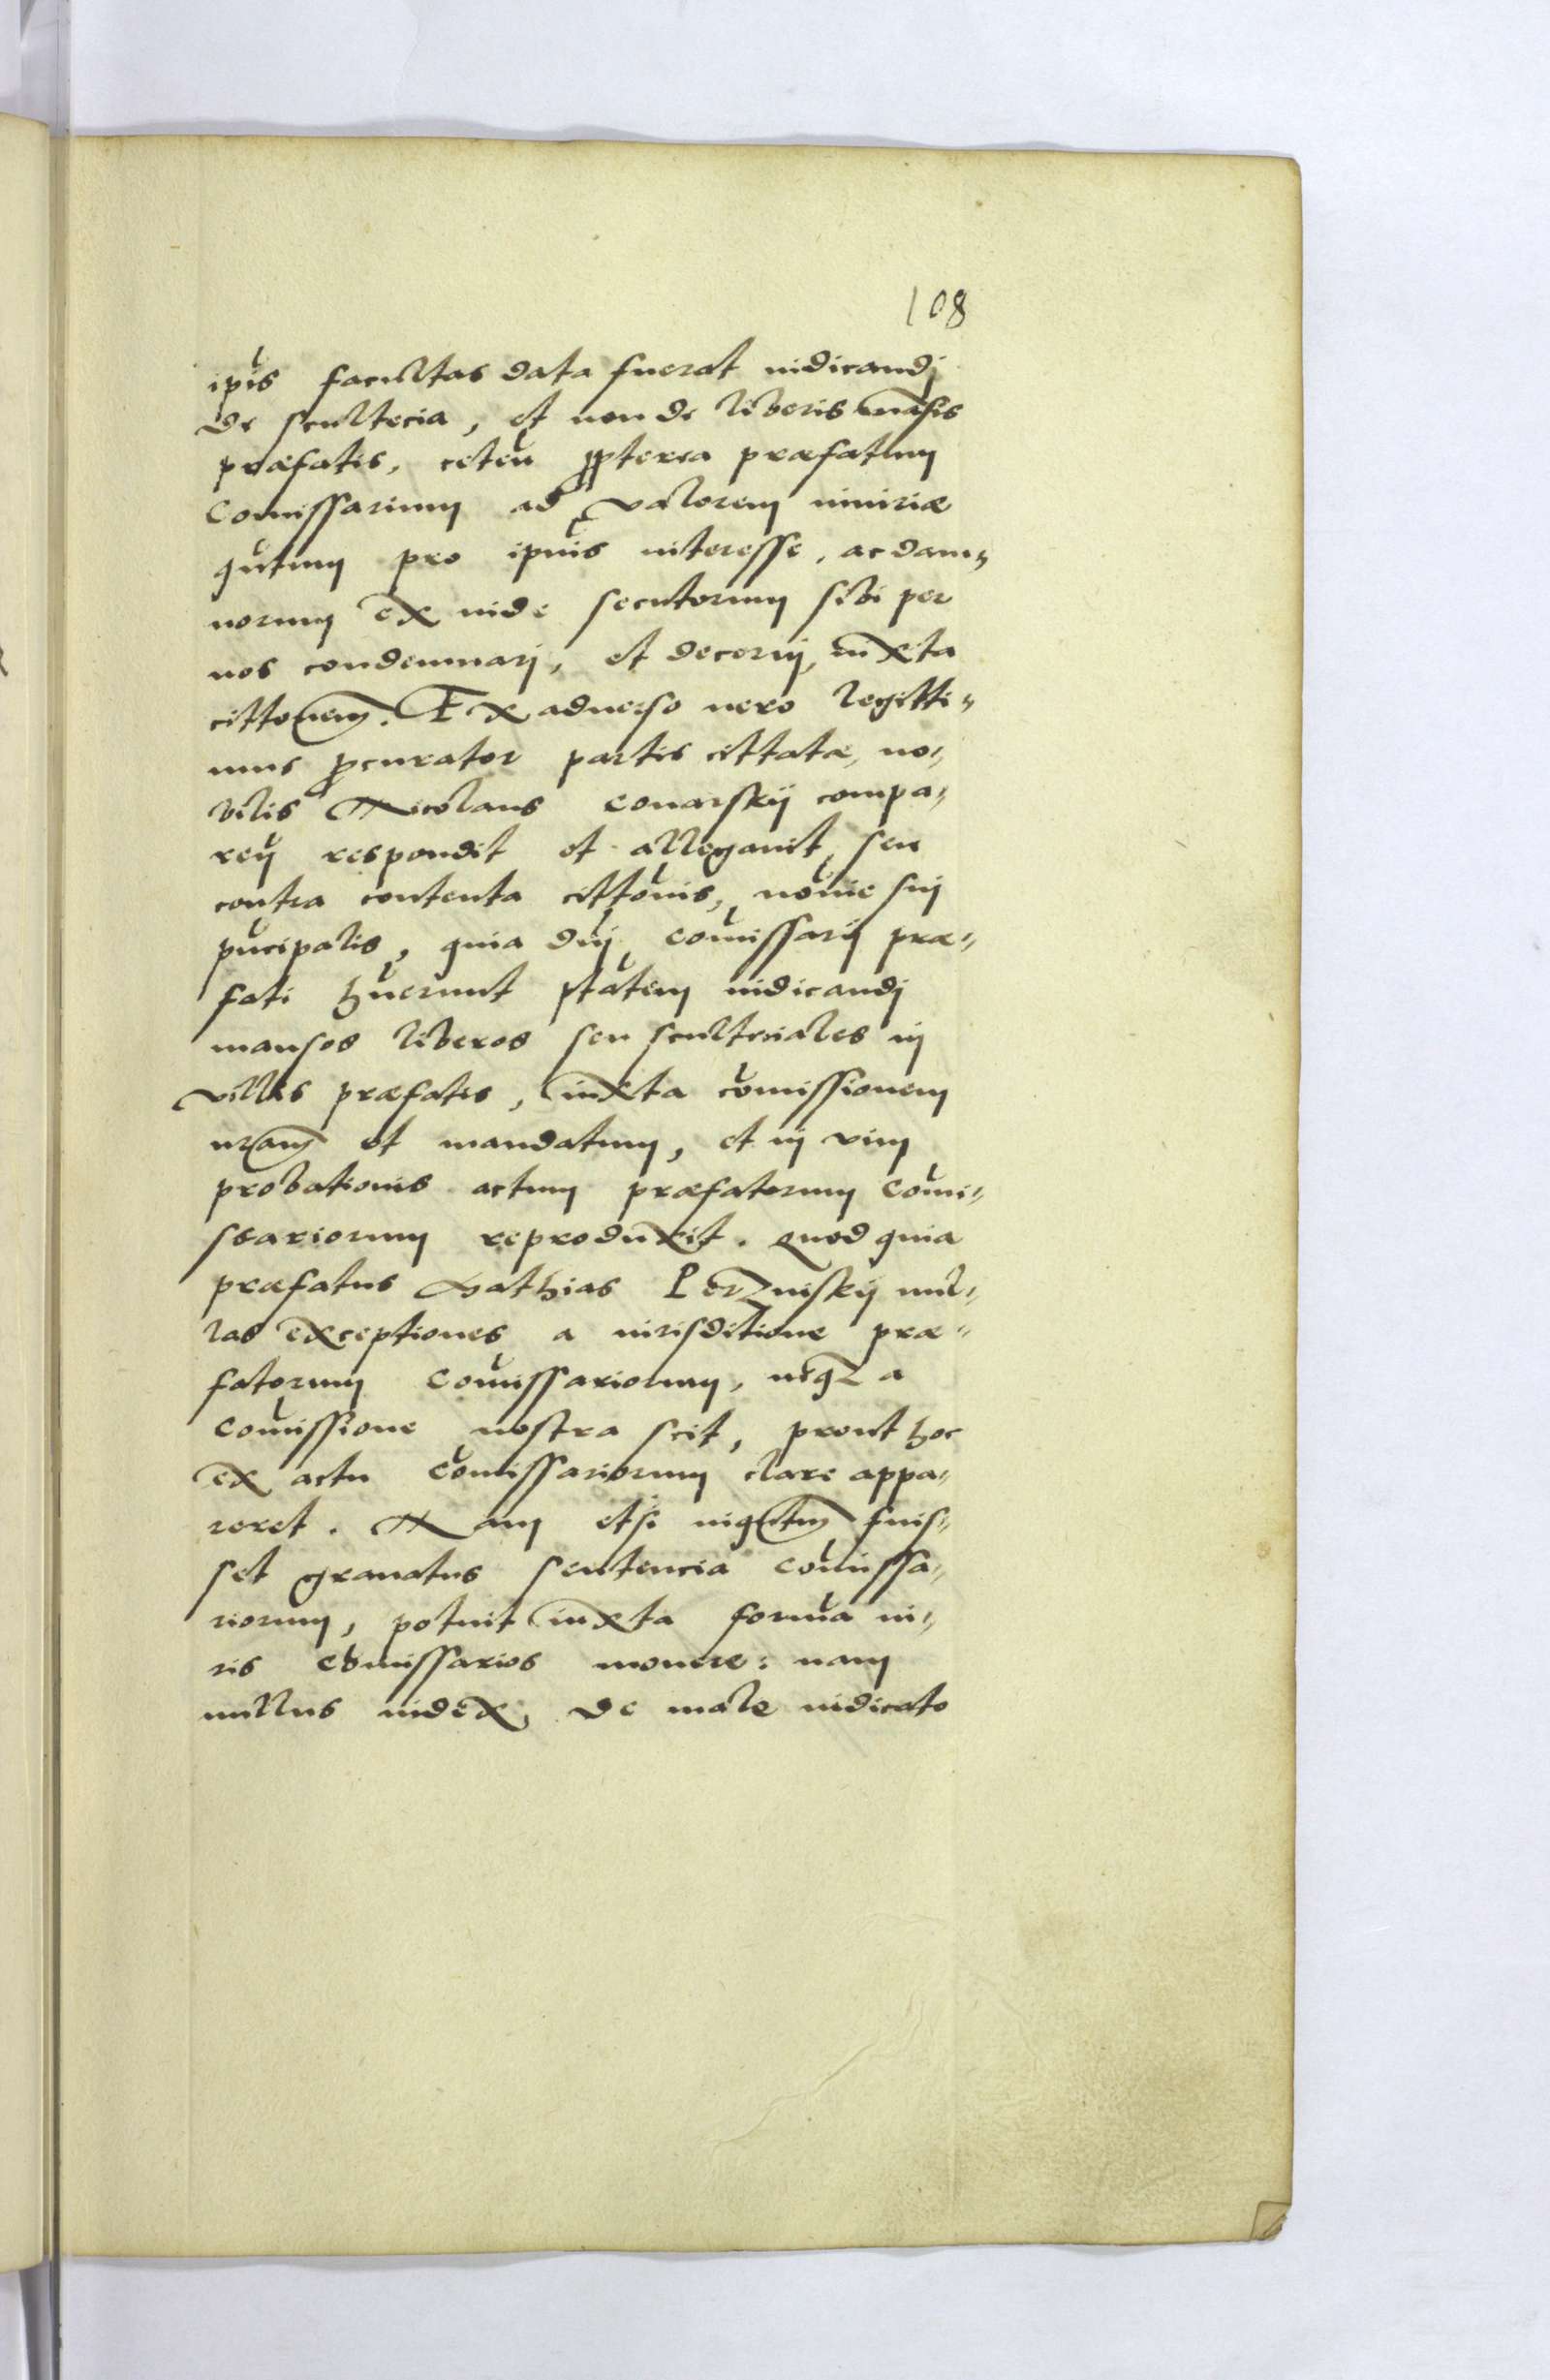 108
ipīs facultas data fuerat iudicandj
de scultecia, et non de liberis māsis
præfatis, ceteū ꝓpterea præfatum
Comissarium ad valorem iniuriæ
qūtum pro ipīus interesse, ac dam„
norum ex inde secutorum sibi per
nos condemnarj, et decernj, iuxta
cittonem. Ex aduerso uero legitti„
mus ꝓcurator partis cittatæ, no„
bilis Nicolaus Conarskij compa„
reñ respondit et allegauit, seu
contra contenta cittoīs, noīe suj
pncipalis, quia dnj Comissarij præ„
fati hūerunt ptātem iudicandj
mansos liberos seu scultetiales in
villis præfatis, iuxta comissionem
nram et mandatum, et in vim
probationis actum præfatorum Comi„
ssariorum reproduxit. Quod quia
præfatus Mathias Perzinskij nul„
las exceptiones a iurisditione præ„
fatorum Comissariorum, neqz a
Comissione nostra fecit, prout hoc
ex actu Comissariorum clare appa„
reret. Nam etsi inqutum fuis„
set grauatus sentencia Comissa„
riorum, potuit iuxta formā iu„
ris Comissarios mouere: nam
nullus iudex, de male iudicato